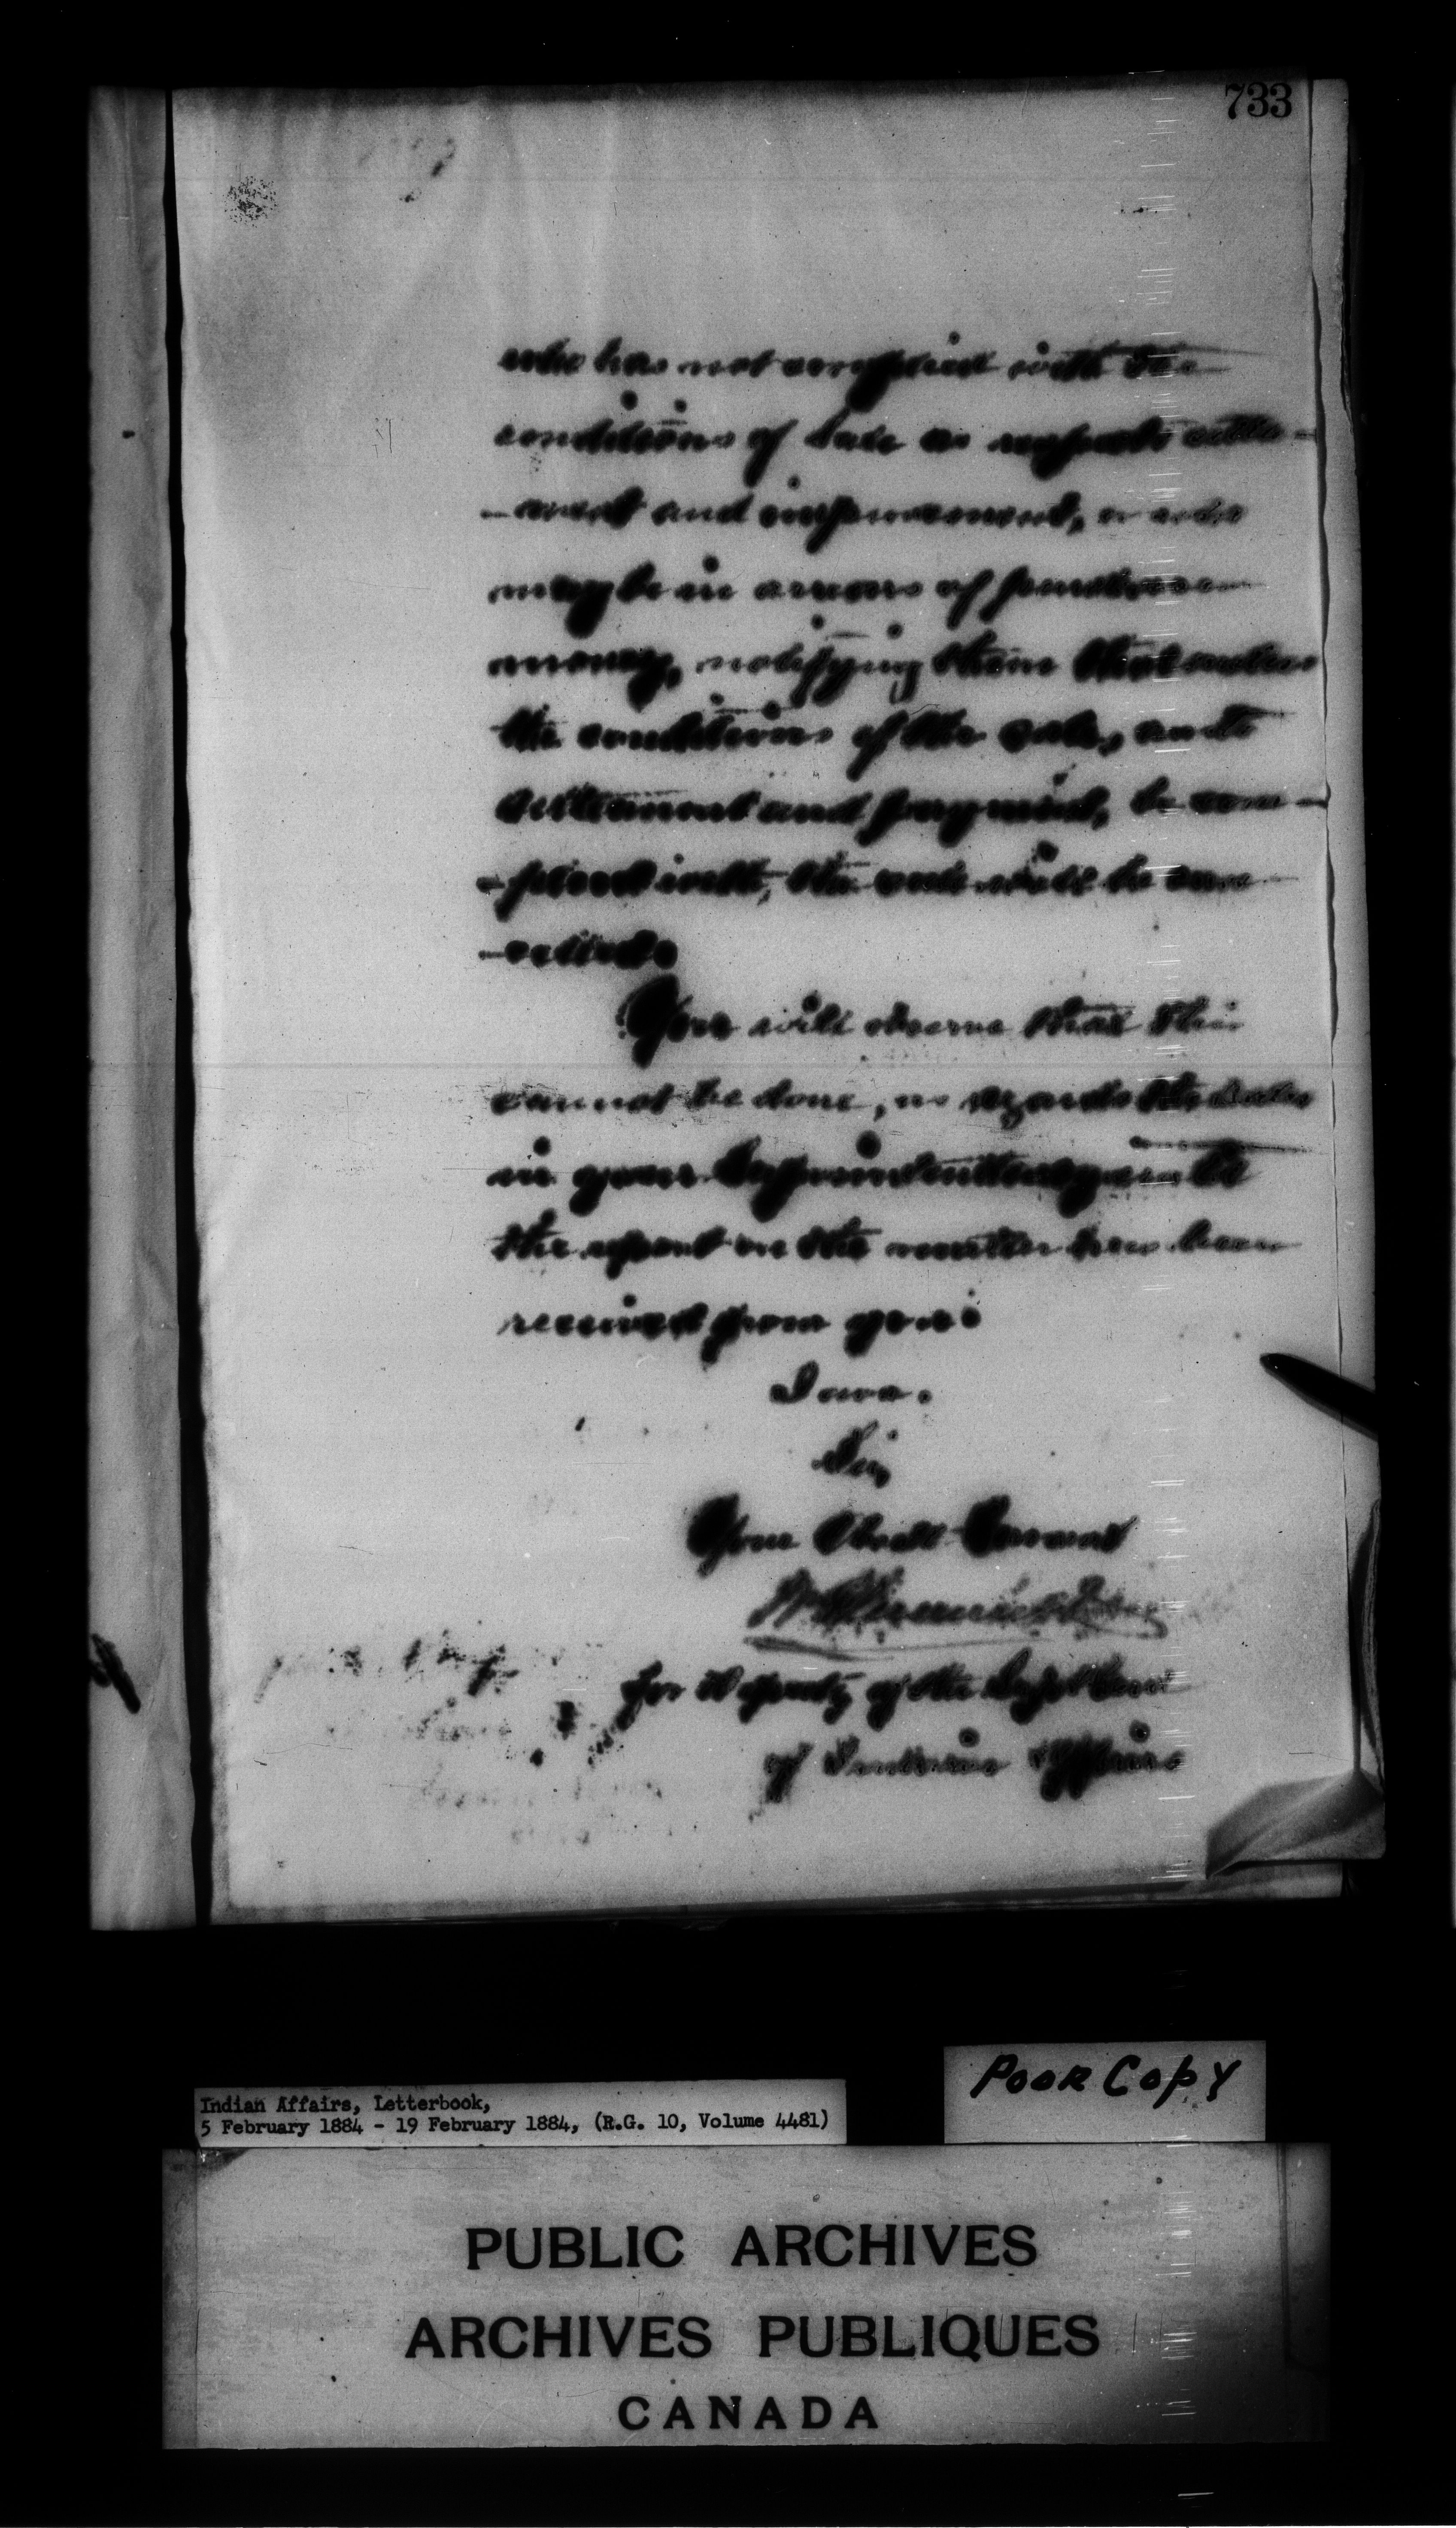 733
who has not complied with the
conditions of Sale as respects settle-
-ment and improvement, or who
may be in arrears of purchase
money, notifying them that unless
the conditions of the sale, as to
settlement and payment, be com-
-plied with, the sale will be can-
-celled.
You will observe that this
cannot be done, as regards the Sales
in your Superintendency until
the report on the matter has been
received from you.
I am.
Sir,
Your Obedt Servant
for Deputy of the Supt Genl
of Indian Affairs
Indian Affairs, Letterbook,
5 February 1884 - 19 February 1884, (R.G. 10, Volume 4481)
POOR COPY
PUBLIC ARCHIVES
ARCHIVES PUBLIQUES
CANADA